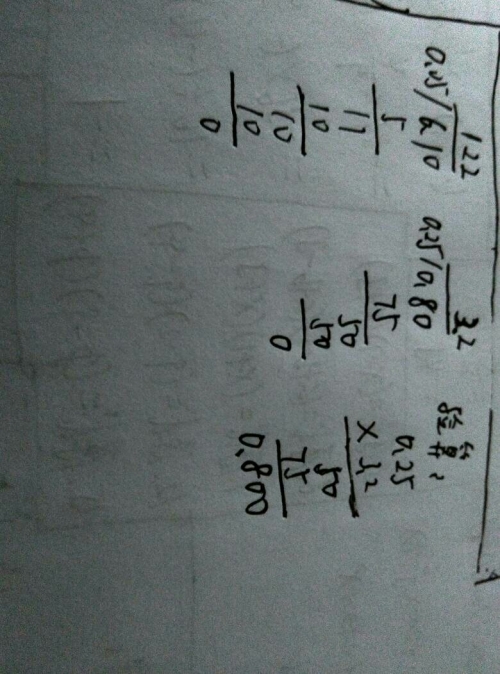 122
0.05/6.10
5
11
10
10
10
0
3.2
0.25/0.80
75
50
50
0
验算:
0.25
× 3.2
50
75
0.800